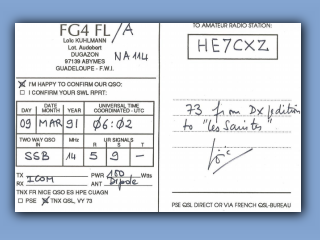 FG4 FL/A
Lolo KUHLMANN
Lot. Audebert
DUGAZON
97139 ABYMES
GUADELOUPE - F.W.I.
NA 114
I'M HAPPY TO CONFIRM OUR QSO:
I CONFIRM YOUR SWL RPRT:
DAY DATE MONTH YEAR UNIVERSAL TIME COORDINATED - UTC
09 MAR 91 06:02
TWO WAY QSO IN MHz UR SIGNALS R S T
SSB 14 5 9 -
TX ICOM PWR 400 Wtts
RX ANT Dipole
TNX FR NICE QSO ES HPE CUAGN
PSE TNX QSL, VY 73
TO AMATEUR RADIO STATION:
HE7CXZ
73 from Dx/pedition
to "Les Saintes"
PSE QSL DIRECT OR VIA FRENCH QSL-BUREAU